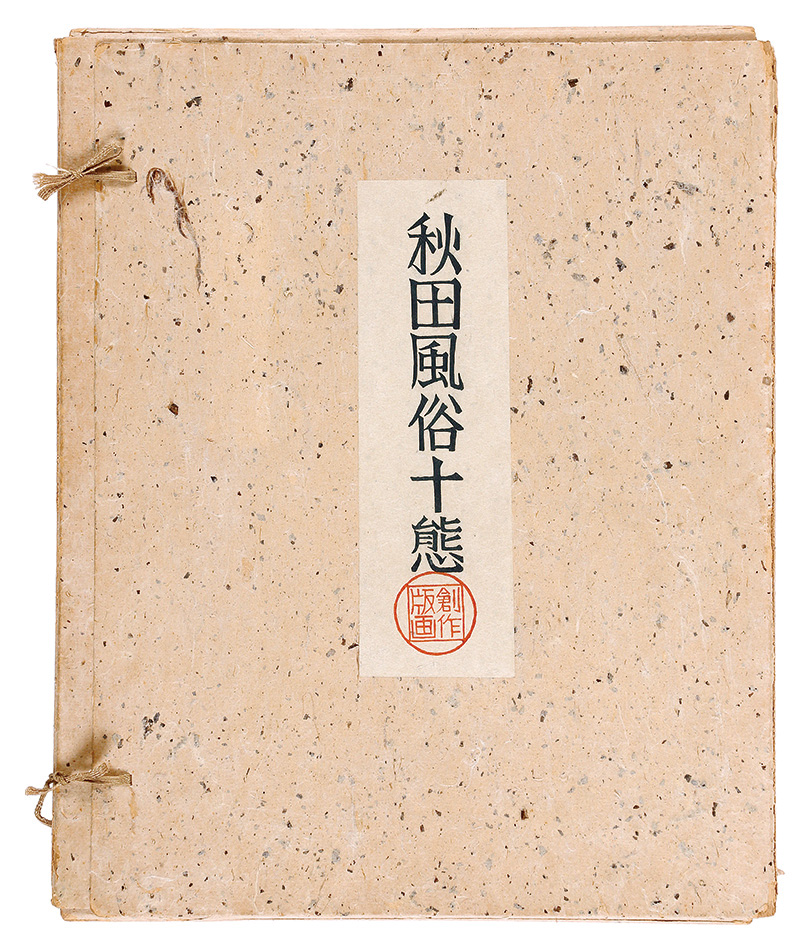 秋田風俗十態
創作
版画